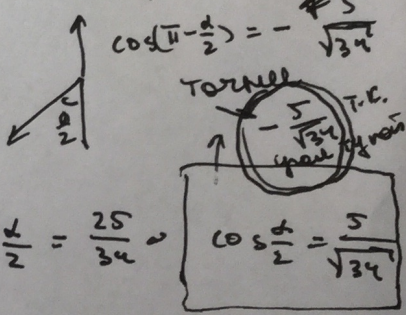 cos(π - α/2) = - 5/√34
точнее
- 5/√34 т.к.
угол тупой
α/2
α/2 = 25/34
cos α/2 = 5/√34